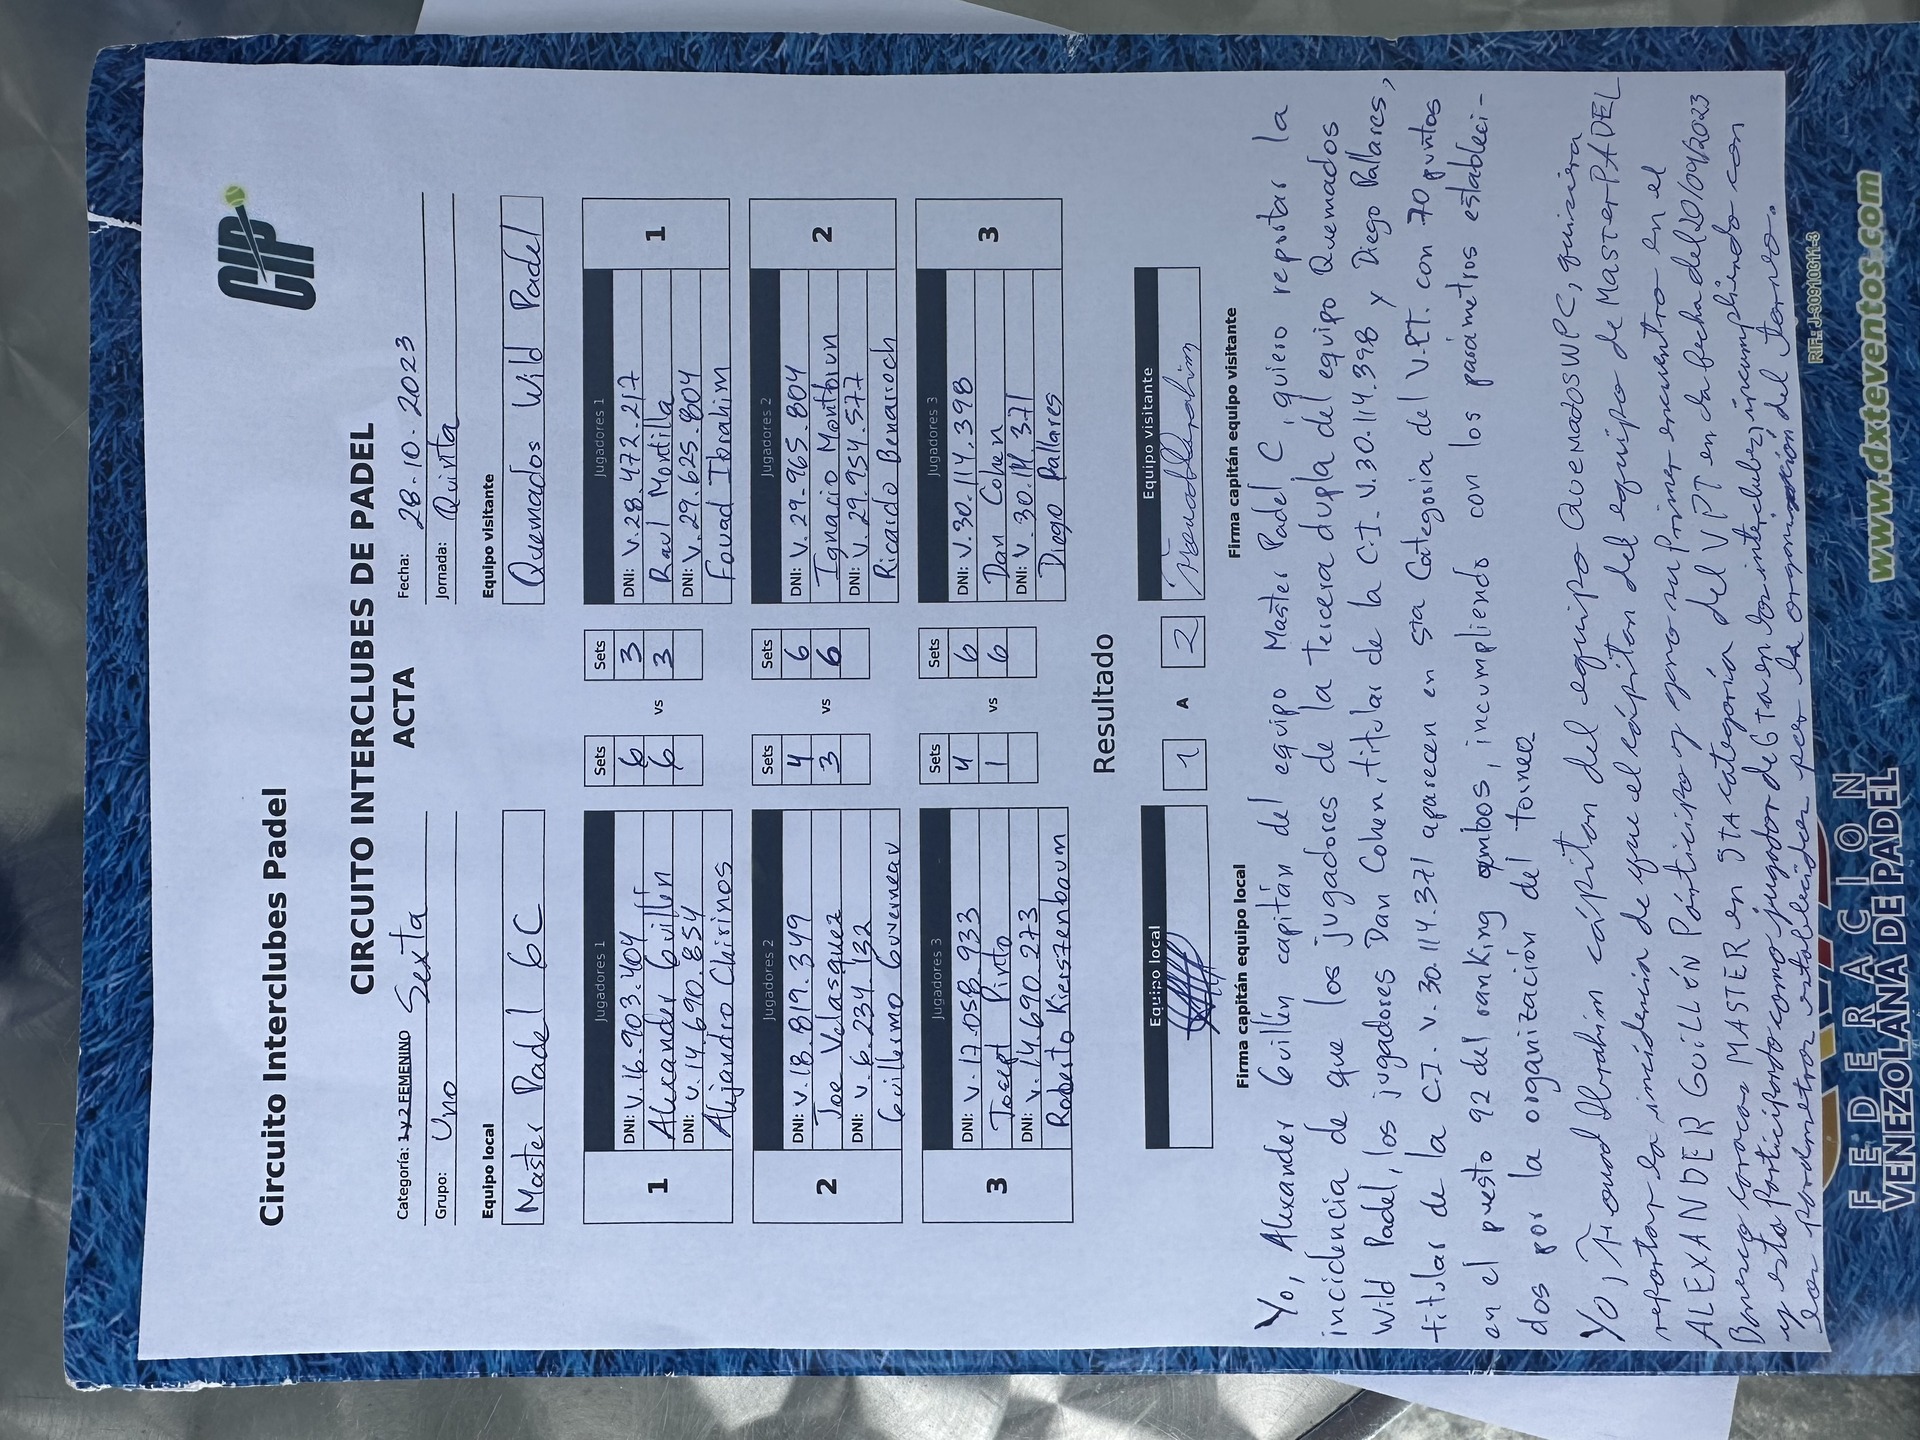 Circuito Interclubes Padel
CIP
CIRCUITO INTERCLUBES DE PADEL
ACTA
Categoría: 1 y 2 FEMENINO Sexta
Fecha: 28.10.2023
Grupo: Uno
Jornada: Quinta
Equipo local
Equipo visitante
Master Padel 6C
Quemados Wild Padel
Jugadores 1
Sets
Sets
Jugadores 1
1
DNI: V.16.903.404
6
vs
3
DNI: V.28.472.217
1
Alexander Guillén
6
3
Raul Montilla
DNI: V.14.690.854
DNI: V.29.625.804
Alejandro Chirinos
Fouad Ibrahim
Jugadores 2
Sets
Sets
Jugadores 2
2
DNI: V.18.819.349
4
vs
6
DNI: V.29.965.804
2
Joe Velasquez
3
6
Ignacio Montbrun
DNI: V.6.234.132
DNI: V.29.954.577
Guillermo Guverneav
Ricardo Benarroch
Jugadores 3
Sets
Sets
Jugadores 3
3
DNI: V.17.058.933
4
vs
6
DNI: V.30.114.398
3
Josept Pinto
1
6
Dan Cohen
DNI: V.14.690.273
DNI: V.30.114.371
Roberto Kiestenbaum
Diego Pallares
Resultado
Equipo local
1 A 2
Equipo visitante
Firma capitán equipo local
Firma capitán equipo visitante
Yo, Alexander Guillén capitán del equipo Master Padel C, quiero reportar la
incidencia de que los jugadores de la tercera dupla del equipo Quemados
Wild Padel, los jugadores Dan Cohen, titular de la C.I. V.30.114.398 y Diego Pallares,
titular de la C.I. V.30.114.371 aparecen en 5ta Categoría del V.P.T. con 70 puntos
en el puesto 92 del ranking ambos, incumpliendo con los parámetros estableci-
dos por la organización del torneo.
Yo, Fouad Ibrahim cápitan del equipo QuemadosWPC, quisiera
reportar la incidencia de que el cápitan del equipo de MasterPADEL
ALEXANDER GUILLÉN Párticipo y gano su primer encuentro en el
caracas MASTER en 5TA categoría del VPT en la fecha del 20/09/2023
y esta participando como jugador de 6ta en los interclubes, incumpliendo con
los parámetros establecidos por la organización del torneo.
RIF: J-309110611-3
www.dxteventos.com
FEDERACION
VENEZOLANA DE PADEL